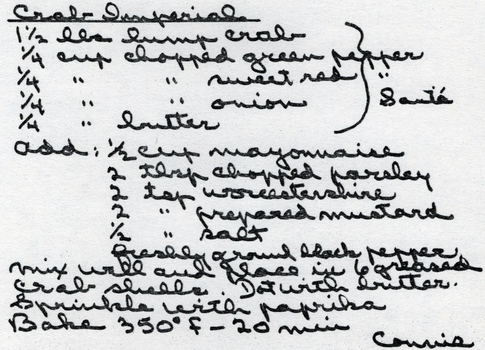 Crab Imperial
1 1/2 lbs lump crab
1/4 cup chopped green pepper
1/4 " " sweet red "
1/4 " " onion Sauté
1/4 " butter
add: 1/2 cup mayonnaise
2 tbsp chopped parsley
2 tsp worcestershire
2 " prepared mustard
1/2 " salt
freshly ground black pepper
mix well and place in 6 greased
crab shells. Dot with butter.
Sprinkle with paprika
Bake 350° F - 20 min
Connie